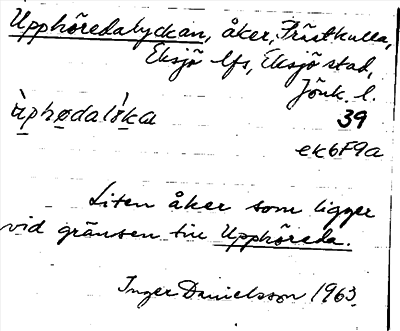 Upphöredalyckan, åker, Prästkulla,
Eksjö lfs, Eksjö stad,
Jönk. l.
ùphødalỳka 39
ek6F9a
Liten åker som ligger
vid gränsen till Upphöreda.
Inger Danielsson 1963.